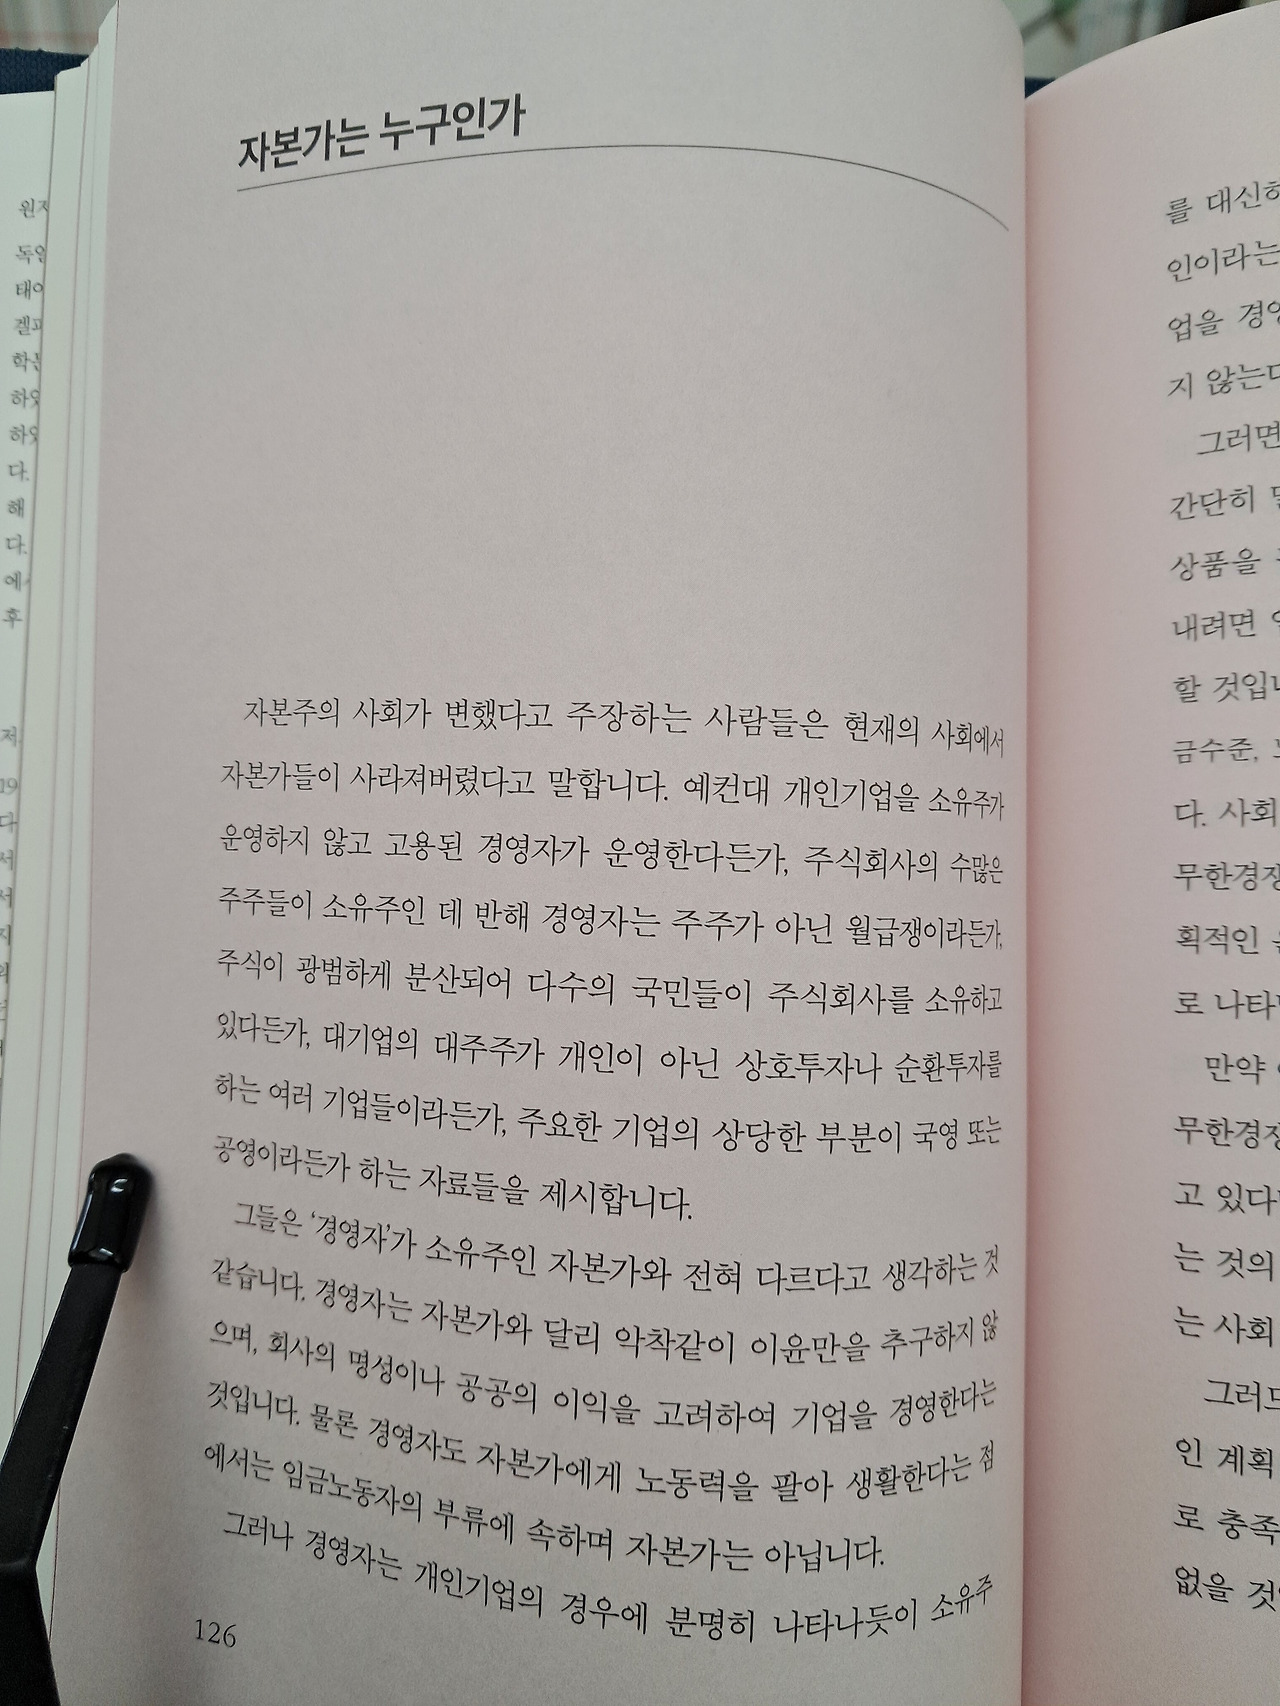 자본가는 누구인가
자본주의 사회가 변했다고 주장하는 사람들은 현재의 사회에서
자본가들이 사라져버렸다고 말합니다. 예컨대 개인기업을 소유주가
운영하지 않고 고용된 경영자가 운영한다든가, 주식회사의 수많은
주주들이 소유주인 데 반해 경영자는 주주가 아닌 월급쟁이라든가,
주식이 광범하게 분산되어 다수의 국민들이 주식회사를 소유하고
있다든가, 대기업의 대주주가 개인이 아닌 상호투자나 순환투자를
하는 여러 기업들이라든가, 주요한 기업의 상당한 부분이 국영 또는
공영이라든가 하는 자료들을 제시합니다.
그들은 ‘경영자’가 소유주인 자본가와 전혀 다르다고 생각하는 것
같습니다. 경영자는 자본가와 달리 악착같이 이윤만을 추구하지 않
으며, 회사의 명성이나 공공의 이익을 고려하여 기업을 경영한다는
것입니다. 물론 경영자도 자본가에게 노동력을 팔아 생활한다는 점
에서는 임금노동자의 부류에 속하며 자본가는 아닙니다.
그러나 경영자는 개인기업의 경우에 분명히 나타나듯이 소유주
126
를 대신
인이라는
업을
지 않는
그러면
간단히
상품을
내려면
할
금수준,
다. 사회
무한경쟁
획적인
로
만약
무한경쟁
고
는 것의
는 사회
인 계획
로 충족
없을